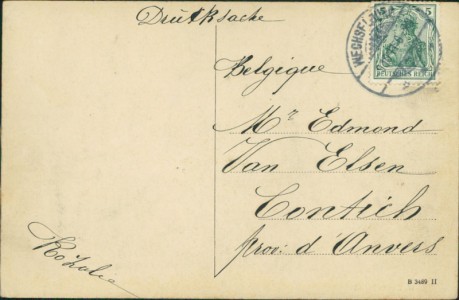 Drucksache
5
DEUTSCHES REICH
Belgique
Mr Edmond
Van Elsen
Contich
prov: d'Anvers
Rozalie
B 3489 II